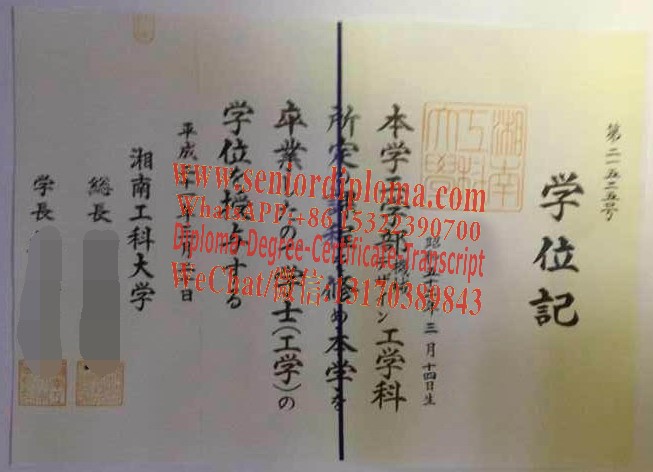 第二一五二五号
学位記
湘南工科大學
年三月十四日生
本学工学部機械デザイン工学科
所定の課程を修め本学を
卒業したので学士(工学)の
学位を授与する
平成十三年三月
日
湘南工科大学
総長
学長
www.seniordiploma.com
WhatsAPP:+86 15327390700
Diploma-Degree-Certificate-Transcript
WeChat/微信:13170389843